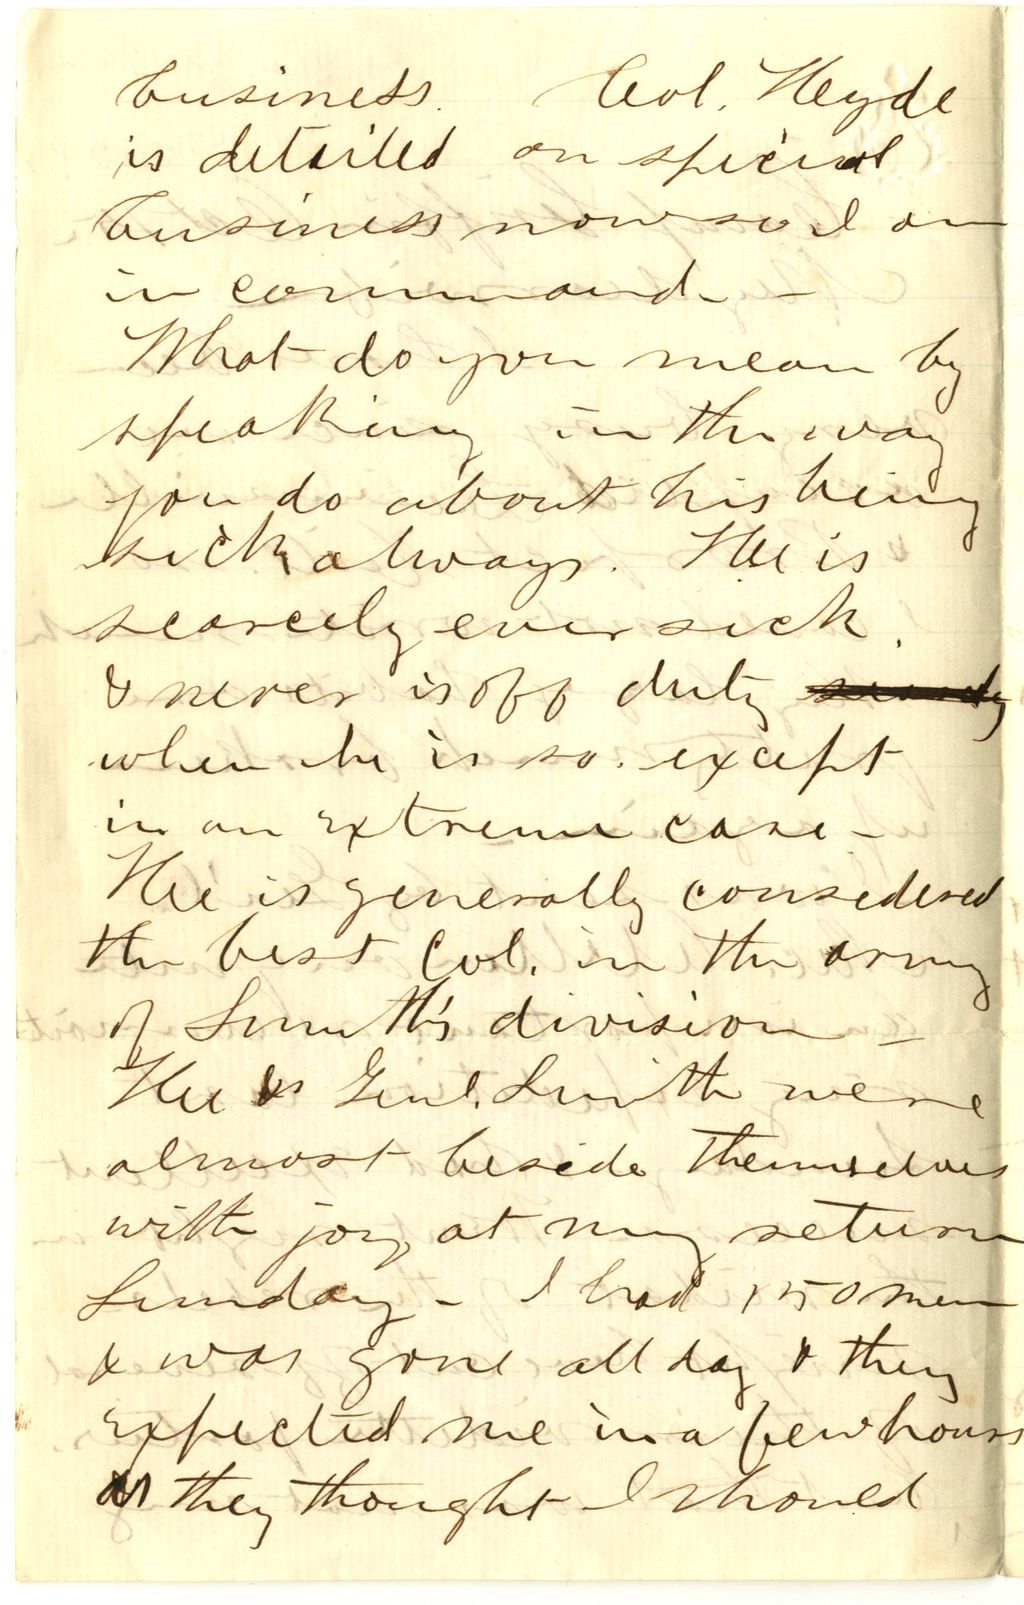 business. Col. Heyde
is detailed on special
business now so I am
in command. -
What do you mean by
speaking in the way
you do about his being
sick always. Hee is
scarcely ever sick.
& never is off duty
when he is so. except
in an extreme case -
Hee is generally considered
the best Col. in the army
of Smith's division -
Hee & Genl. Smith were
almost beside themselves
with joy, at my return
Sunday - I had 150 men
& was gone all day & they
expected me in a few hours
& they thought I should